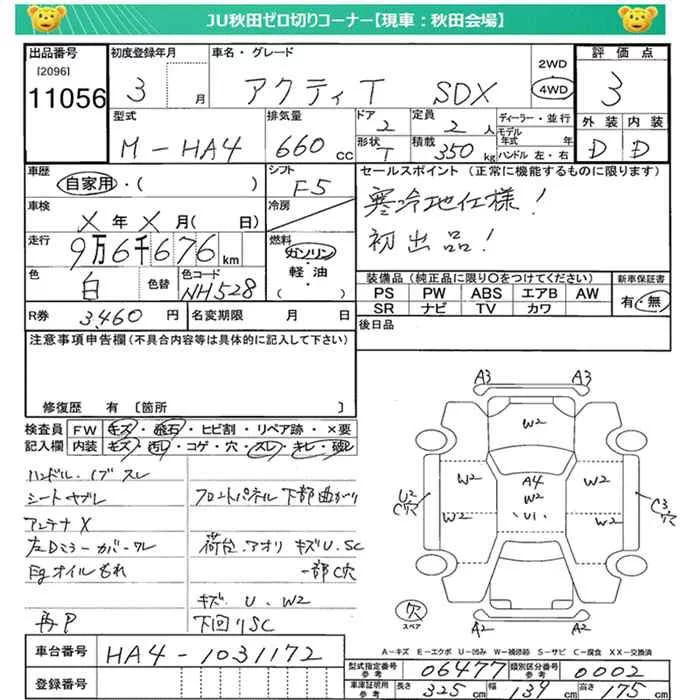 JU秋田ゼロ切りコーナー【現車：秋田会場】
出品番号 初度登録年月 車名・グレード 2WD 評価点
[2096] 11056 3 月 アクティT SDX 4WD 3
型式 排気量 ドア 2 定員 2人 ディーラー・並行 外装 内装
M-HA4 660cc 形状 T 積載 350kg モデル年式 年 ハンドル 左・右 D D
車歴 シフト セールスポイント (正常に機能するものに限ります)
自家用・( ) F5 寒冷地仕様!
車検 X年X月( 日) 冷房 初出品!
走行 9万6千676km 燃料 ガソリン・軽油・( )
色 白 色替 色コード NH528
装備品 (純正品に限り○をつけてください) 新車保証書
PS PW ABS エアB AW 有・無
SR ナビ TV カワ
R券 3,460円 名変期限 月 日 後日品
注意事項申告欄 (不具合内容等は具体的に記入して下さい)
修復歴 有 〔箇所 〕
検査員 FW キズ・飛石・ヒビ割・リペア跡・×要
記入欄 内装 キズ・汚レ・コゲ・穴・スレ・キレ・破レ
ハンドル、ノブ スレ
シートヤブレ フロントパネル下部曲がり
アンテナX
左Dミラーカバーワレ 荷台、アオリ キズU、SC
Egオイルもれ 一部C穴
キズ、U、W2
再P 下回りSC
A3 A3
W2
U2 W2 A4 W2 C3
C穴 W2 穴
W2 U1 W2
穴 A2 A2
スペア
A−キズ E−エクボ U−凹み W−補修跡 S−サビ C−腐食 XX−交換済
車台番号 HA4-1031172
登録番号
型式指定番号 参考 06477 類別区分番号 参考 0002
車庫証明用 参考 長さ 325cm 幅 139cm 高さ 175cm